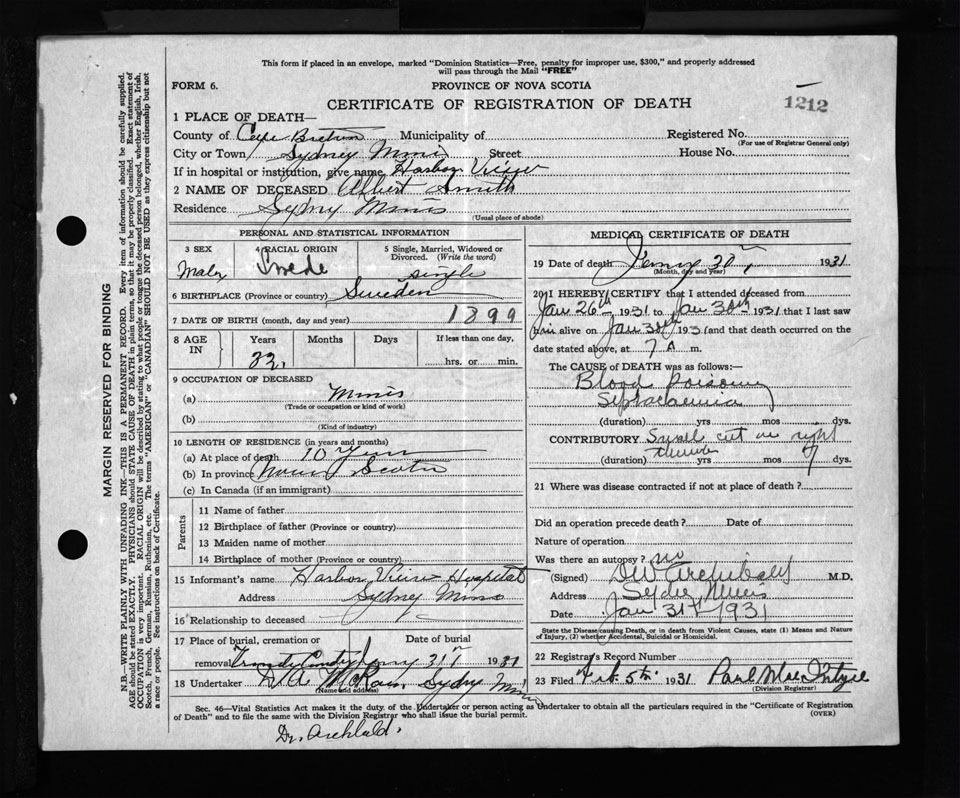 This form if placed in an envelope, marked "Dominion Statistics—Free, penalty for improper use, $300," and properly addressed
will pass through the Mail "FREE"
FORM 6.
PROVINCE OF NOVA SCOTIA
CERTIFICATE OF REGISTRATION OF DEATH
1212
1 PLACE OF DEATH—
County of Cape Breton Municipality of Registered No.
(For use of Registrar General only)
City or Town Sydney Mines Street House No.
If in hospital or institution, give name Harbor View
2 NAME OF DECEASED Albert Smith
Residence Sydney Mines
(Usual place of abode)
PERSONAL AND STATISTICAL INFORMATION
3 SEX 4 RACIAL ORIGIN 5 Single, Married, Widowed or Divorced. (Write the word)
Male Swede single
6 BIRTHPLACE (Province or country) Sweden
7 DATE OF BIRTH (month, day and year) 1899
8 AGE IN Years Months Days If less than one day,
32. hrs. or min.
9 OCCUPATION OF DECEASED
(a)
(Trade or occupation or kind of work)
(b)
(Kind of industry)
10 LENGTH OF RESIDENCE (in years and months)
(a) At place of death 10
(b) In province Nova Scotia
(c) In Canada (if an immigrant)
Parents
11 Name of father
12 Birthplace of father (Province or country)
13 Maiden name of mother
14 Birthplace of mother (Province or country)
15 Informant's name Harbor View Hospital
Address Sydney Mines
16 Relationship to deceased
17 Place of burial, cremation or removal Date of burial
31 1931
18 Undertaker Sydney Mines
(Name and address)
MEDICAL CERTIFICATE OF DEATH
19 Date of death 30, 1931
(Month, day and year)
20 I HEREBY CERTIFY that I attended deceased from
Jan 26th 1931 to Jan 30th 1931 that I last saw
him alive on Jan 30th 1931 and that death occurred on
date stated above, at 7 A m.
The CAUSE of DEATH was as follows:—
Blood Poisoning
Septacaemia
(duration) yrs mos dys.
CONTRIBUTORY Small cut on right
thumb
(duration) yrs mos 7 dys.
21 Where was disease contracted if not at place of death?
Did an operation precede death? Date of
Nature of operation
Was there an autopsy? no
(Signed) DW Archibald M.D.
Address Sydney Mines
Date Jan 31st 1931
State the Disease causing Death, or in death from Violent Causes, state (1) Means and Nature of Injury, (2) whether Accidental, Suicidal or Homicidal.
22 Registrar's Record Number
23 Filed Feb. 5th 1931
(Division Registrar)
Sec. 46—Vital Statistics Act makes it the duty of the Undertaker or person acting as Undertaker to obtain all the particulars required in the "Certificate of Registration
of Death" and to file the same with the Division Registrar who shall issue the burial permit.
(OVER)
Dr. Archibald.
MARGIN RESERVED FOR BINDING
N.B.—WRITE PLAINLY WITH UNFADING INK—THIS IS A PERMANENT RECORD. Every item of information should be carefully supplied.
AGE should be stated EXACTLY. PHYSICIANS should STATE CAUSE OF DEATH in plain terms, so that it may be properly classified. Exact statement of
OCCUPATION is very important. RACIAL ORIGIN will be described by stating to what people or tongue the deceased person belonged, whether English, Irish,
Scotch, French, German, Russian, Ruthenian, etc. The terms "AMERICAN" or "CANADIAN" SHOULD NOT BE USED as they express citizenship but not
a race or people. See instructions on back of Certificate.